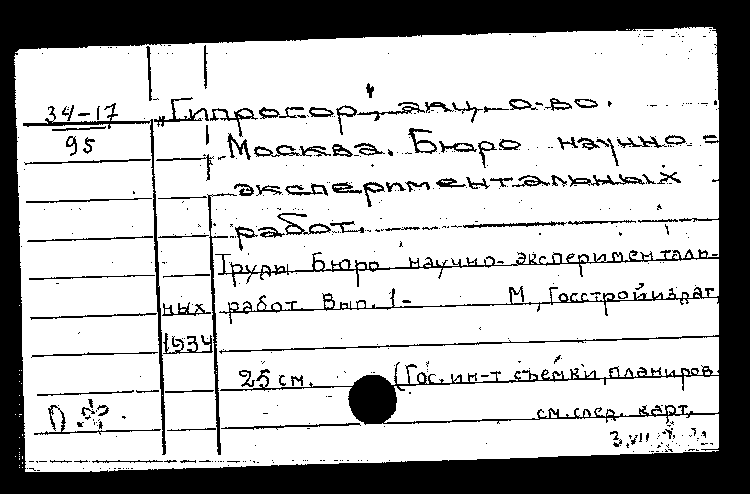 34-17
95
„Гипрогор", акц. о-во.
Москва. Бюро научно=
экспериментальных
работ.
Труды Бюро научно-эксперименталь-
ных работ. Вып. 1- М., Госстройиздат,
1934
25 см. (Гос. ин-т съемки, планиров.
см. след. карт.